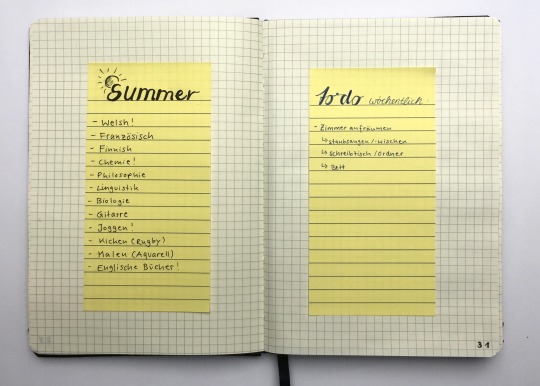 Summer
- Welsh!
- Französisch
- Finnish
- Chemie!
- Philosophie
- Linguistik
- Biologie
- Gitarre
- Joggen!
- Kichen (Rugby)
- Malen (Aquarell)
- Englische Bücher!
To do wöchentlich:
- Zimmer aufräumen
↳ staubsaugen /-wischen
↳ Schreibtisch /Ordner
↳ Bett
31